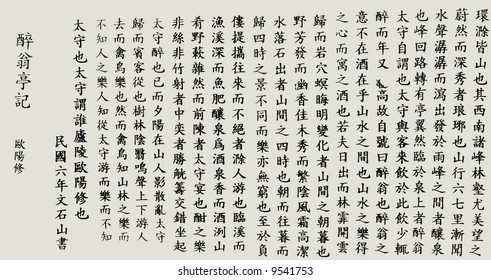 環滁皆山也其西南諸峰林壑尤美望之
蔚然而深秀者琅琊也山行六七里漸聞
水聲潺潺而瀉出於兩峰之間者釀泉
也峰回路轉有亭翼然臨於泉上者醉翁
太守自謂也太守與客來飲於此飲少輒
醉而年又高故自號曰醉翁也醉翁之
意不在酒在乎山水之間也山水之樂得
之心而寓之酒也若夫日出而林霏開雲
歸而岩穴暝晦明變化者山間之朝暮也
野芳發而幽香佳木秀而繁陰風霜高潔
水落石出者山間之四時也朝而往暮而
歸四時之景不同而樂亦無窮也至於負
僂提攜往來而不絕者滁人游也臨溪而
漁溪深而魚肥釀泉為酒泉香而酒洌山
肴野蔌雜然而前陳者太守宴也酣之樂
非絲非竹射者中奕者勝觥籌交錯坐起
太守醉也已而夕陽在山人影散亂太守
歸而賓客從也樹林陰翳鳴聲上下游人
去而禽鳥樂也然而禽鳥知山林之樂而
不知人之樂人知從太守游而樂而不知
太守也太守謂誰廬陵歐陽修也
民國六年文石山書
醉翁亭記
歐陽修
shutterstock
IMAGE ID: 9541753
www.shutterstock.com